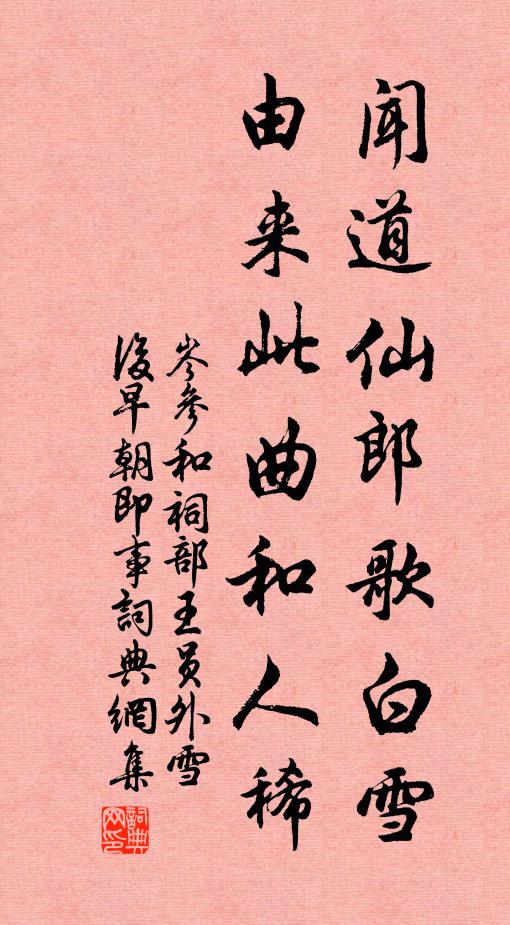 闻道仙郎歌白雪
由来此曲和人稀
岑参和祠部王员外雪
後早朝即事詞典網集
詞典
网印